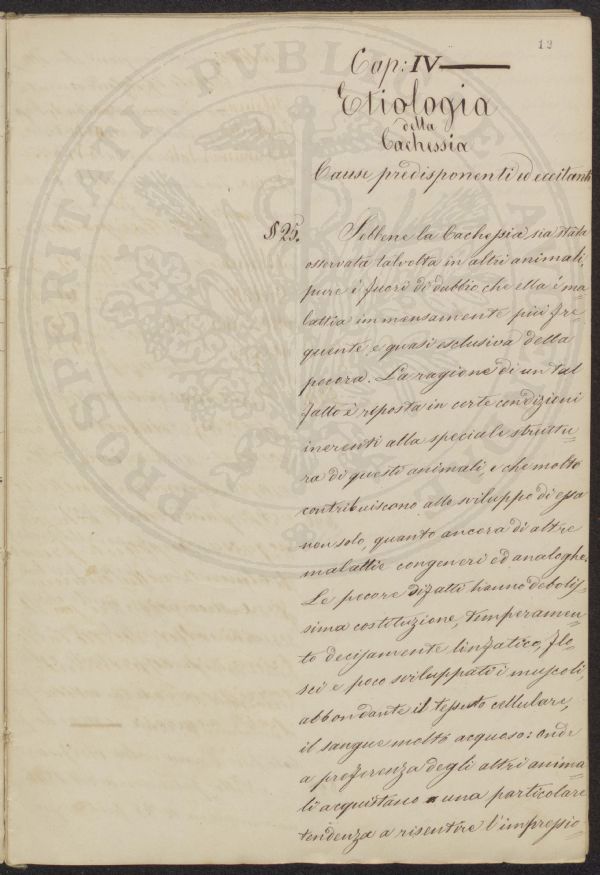 12
Cap: IV
Etiologia
della
Cachessia
Cause predisponenti ed eccitanti
§ 25. Sebbene la Cachessia sia stata
osservata talvolta in altri animali,
pure è fuori di dubbio che ella è ma
lattia immensamente più fre
quente, e quasi esclusiva della
pecora. La ragione di un tal
fatto è riposta in certe condizioni
inerenti alla speciale struttu=
ra di questi animali, e che molto
contribuiscono allo sviluppo di essa
non solo, quanto ancora di altre
malattie congeneri ed analoghe.
Le pecore difatti hanno debolis=
sima costituzione, temperamen=
to decisamente linfatico, flo=
sci e poco sviluppati i muscoli,
abbondante il tessuto cellulare,
il sangue molto acquoso: onde
a preferenza degli altri anima=
li acquistano una particolare
tendenza a risentire l'impressio=
PROSPERITATI PVBLICAE A